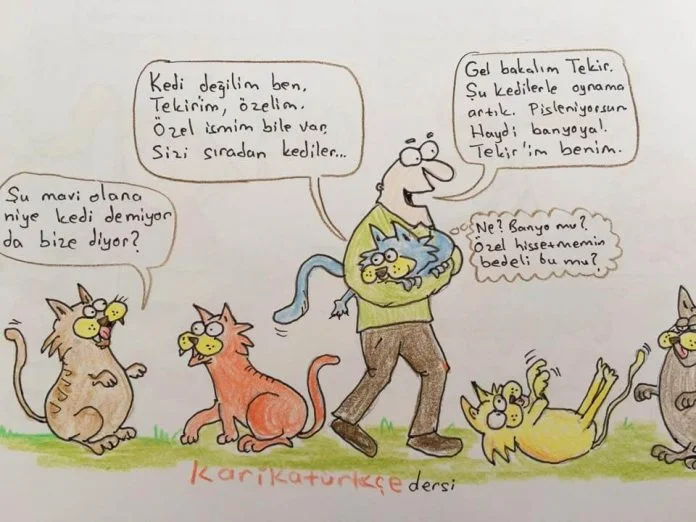 Şu mavi olana
niye kedi demiyor
da bize diyor?
Kedi değilim ben.
Tekir'im, özelim.
Özel ismim bile var.
Sizi sıradan kediler...
Gel bakalım Tekir.
Şu kedilerle oynama
artık. Pisleniyorsun
Haydi banyoya!
Tekir'im benim.
Ne? Banyo mu?
Özel hissetmemin
bedeli bu mu?
Karikatürkçe dersi